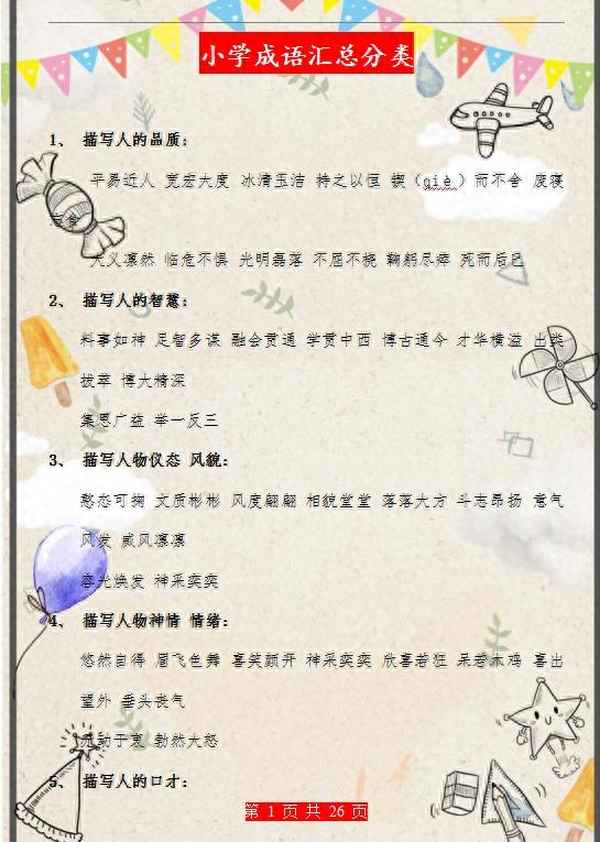 小学成语汇总分类
1、 描写人的品质:
平易近人 宽宏大度 冰清玉洁 持之以恒 锲(qiè)而不舍 废寝
忘食
大义凛然 临危不惧 光明磊落 不屈不挠 鞠躬尽瘁 死而后已
2、 描写人的智慧:
料事如神 足智多谋 融会贯通 学贯中西 博古通今 才华横溢 出类
拔萃 博大精深
集思广益 举一反三
3、 描写人物仪态 风貌:
憨态可掬 文质彬彬 风度翩翩 相貌堂堂 落落大方 斗志昂扬 意气
风发 威风凛凛
容光焕发 神采奕奕
4、 描写人物神情 情绪:
悠然自得 眉飞色舞 喜笑颜开 神采奕奕 欣喜若狂 呆若木鸡 喜出
望外 垂头丧气
无动于衷 勃然大怒
5、 描写人的口才:
第 1 页 共 26 页